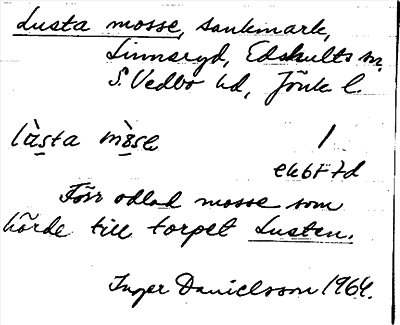 Lusta mosse, sankmark,
Linnsryd, Edshults sn,
S. Vedbo hd, Jönk l.
mòse /
ek 6 F 7 d
Förr odlad mosse som
hörde till torpet Lusten.
Inger Danielsson 1964.